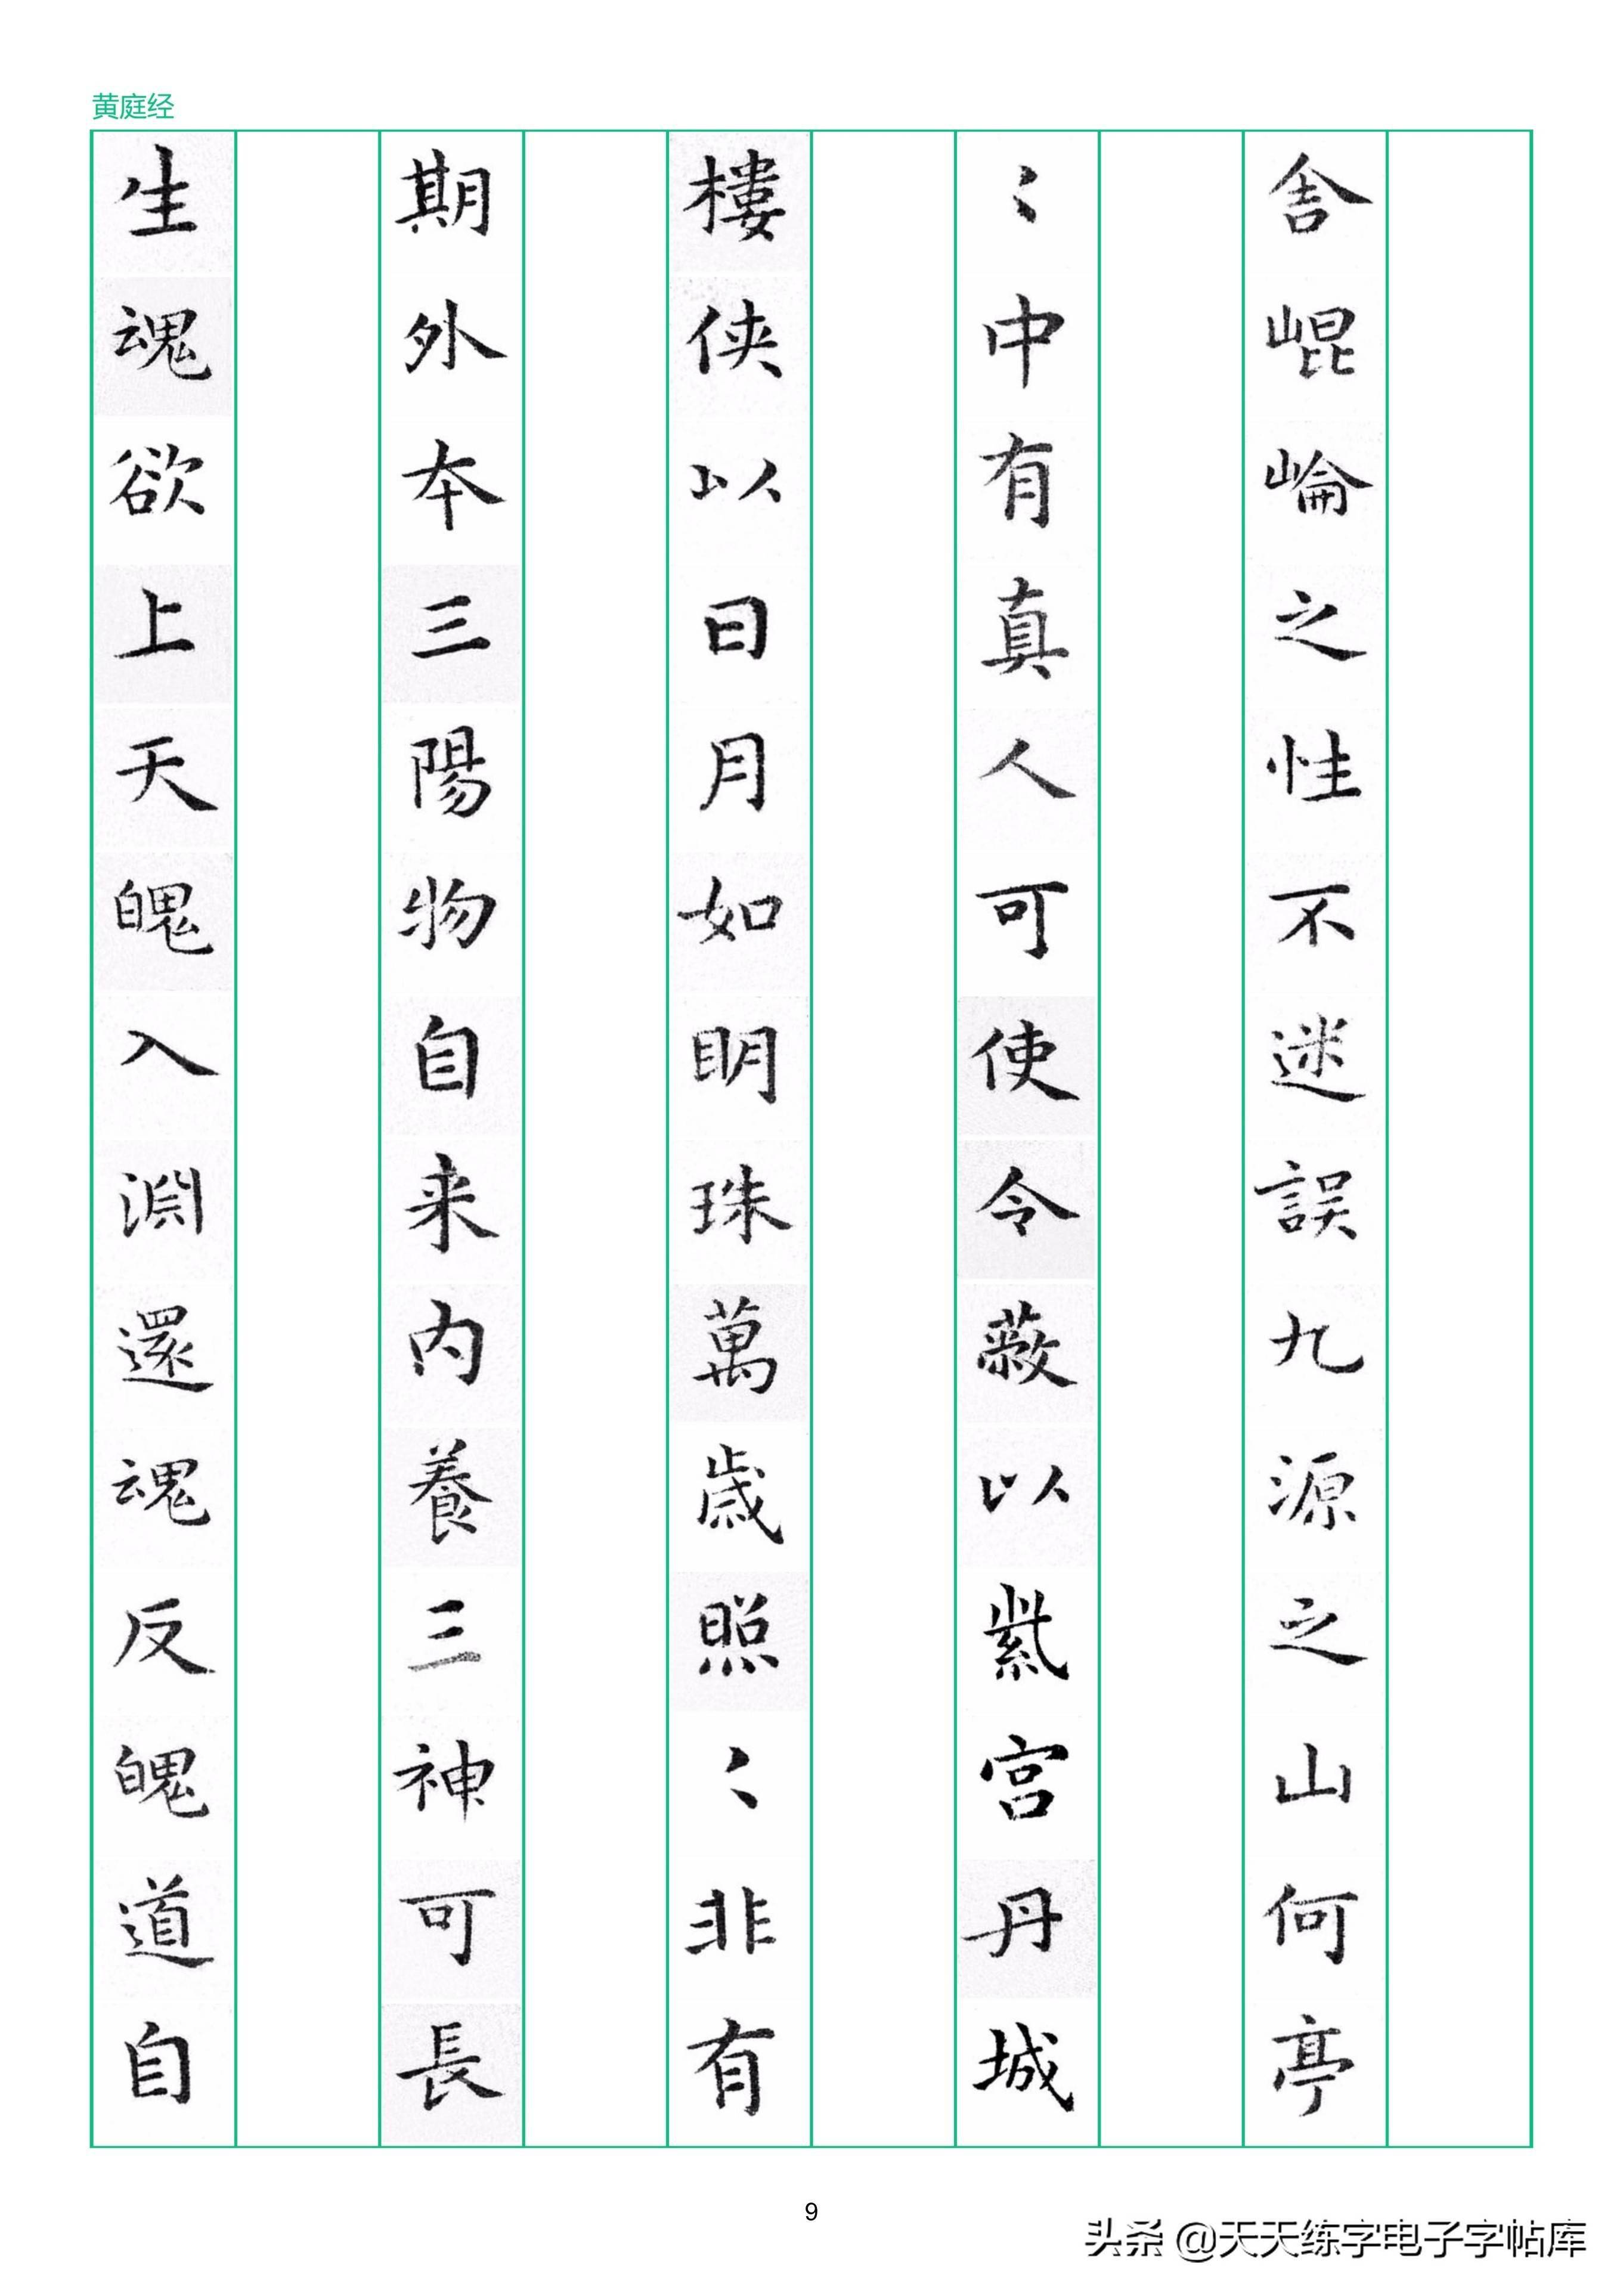 黄庭经
舍崐崘之性不迷誤九源之山何亭
〻中有真人可使令蔽以紫宮丹城
樓侠以日月如明珠萬歲照〻非有
期外本三陽物自来内養三神可長
生魂欲上天魄入淵還魂反魄道自
9
头条 @天天练字电子字帖库